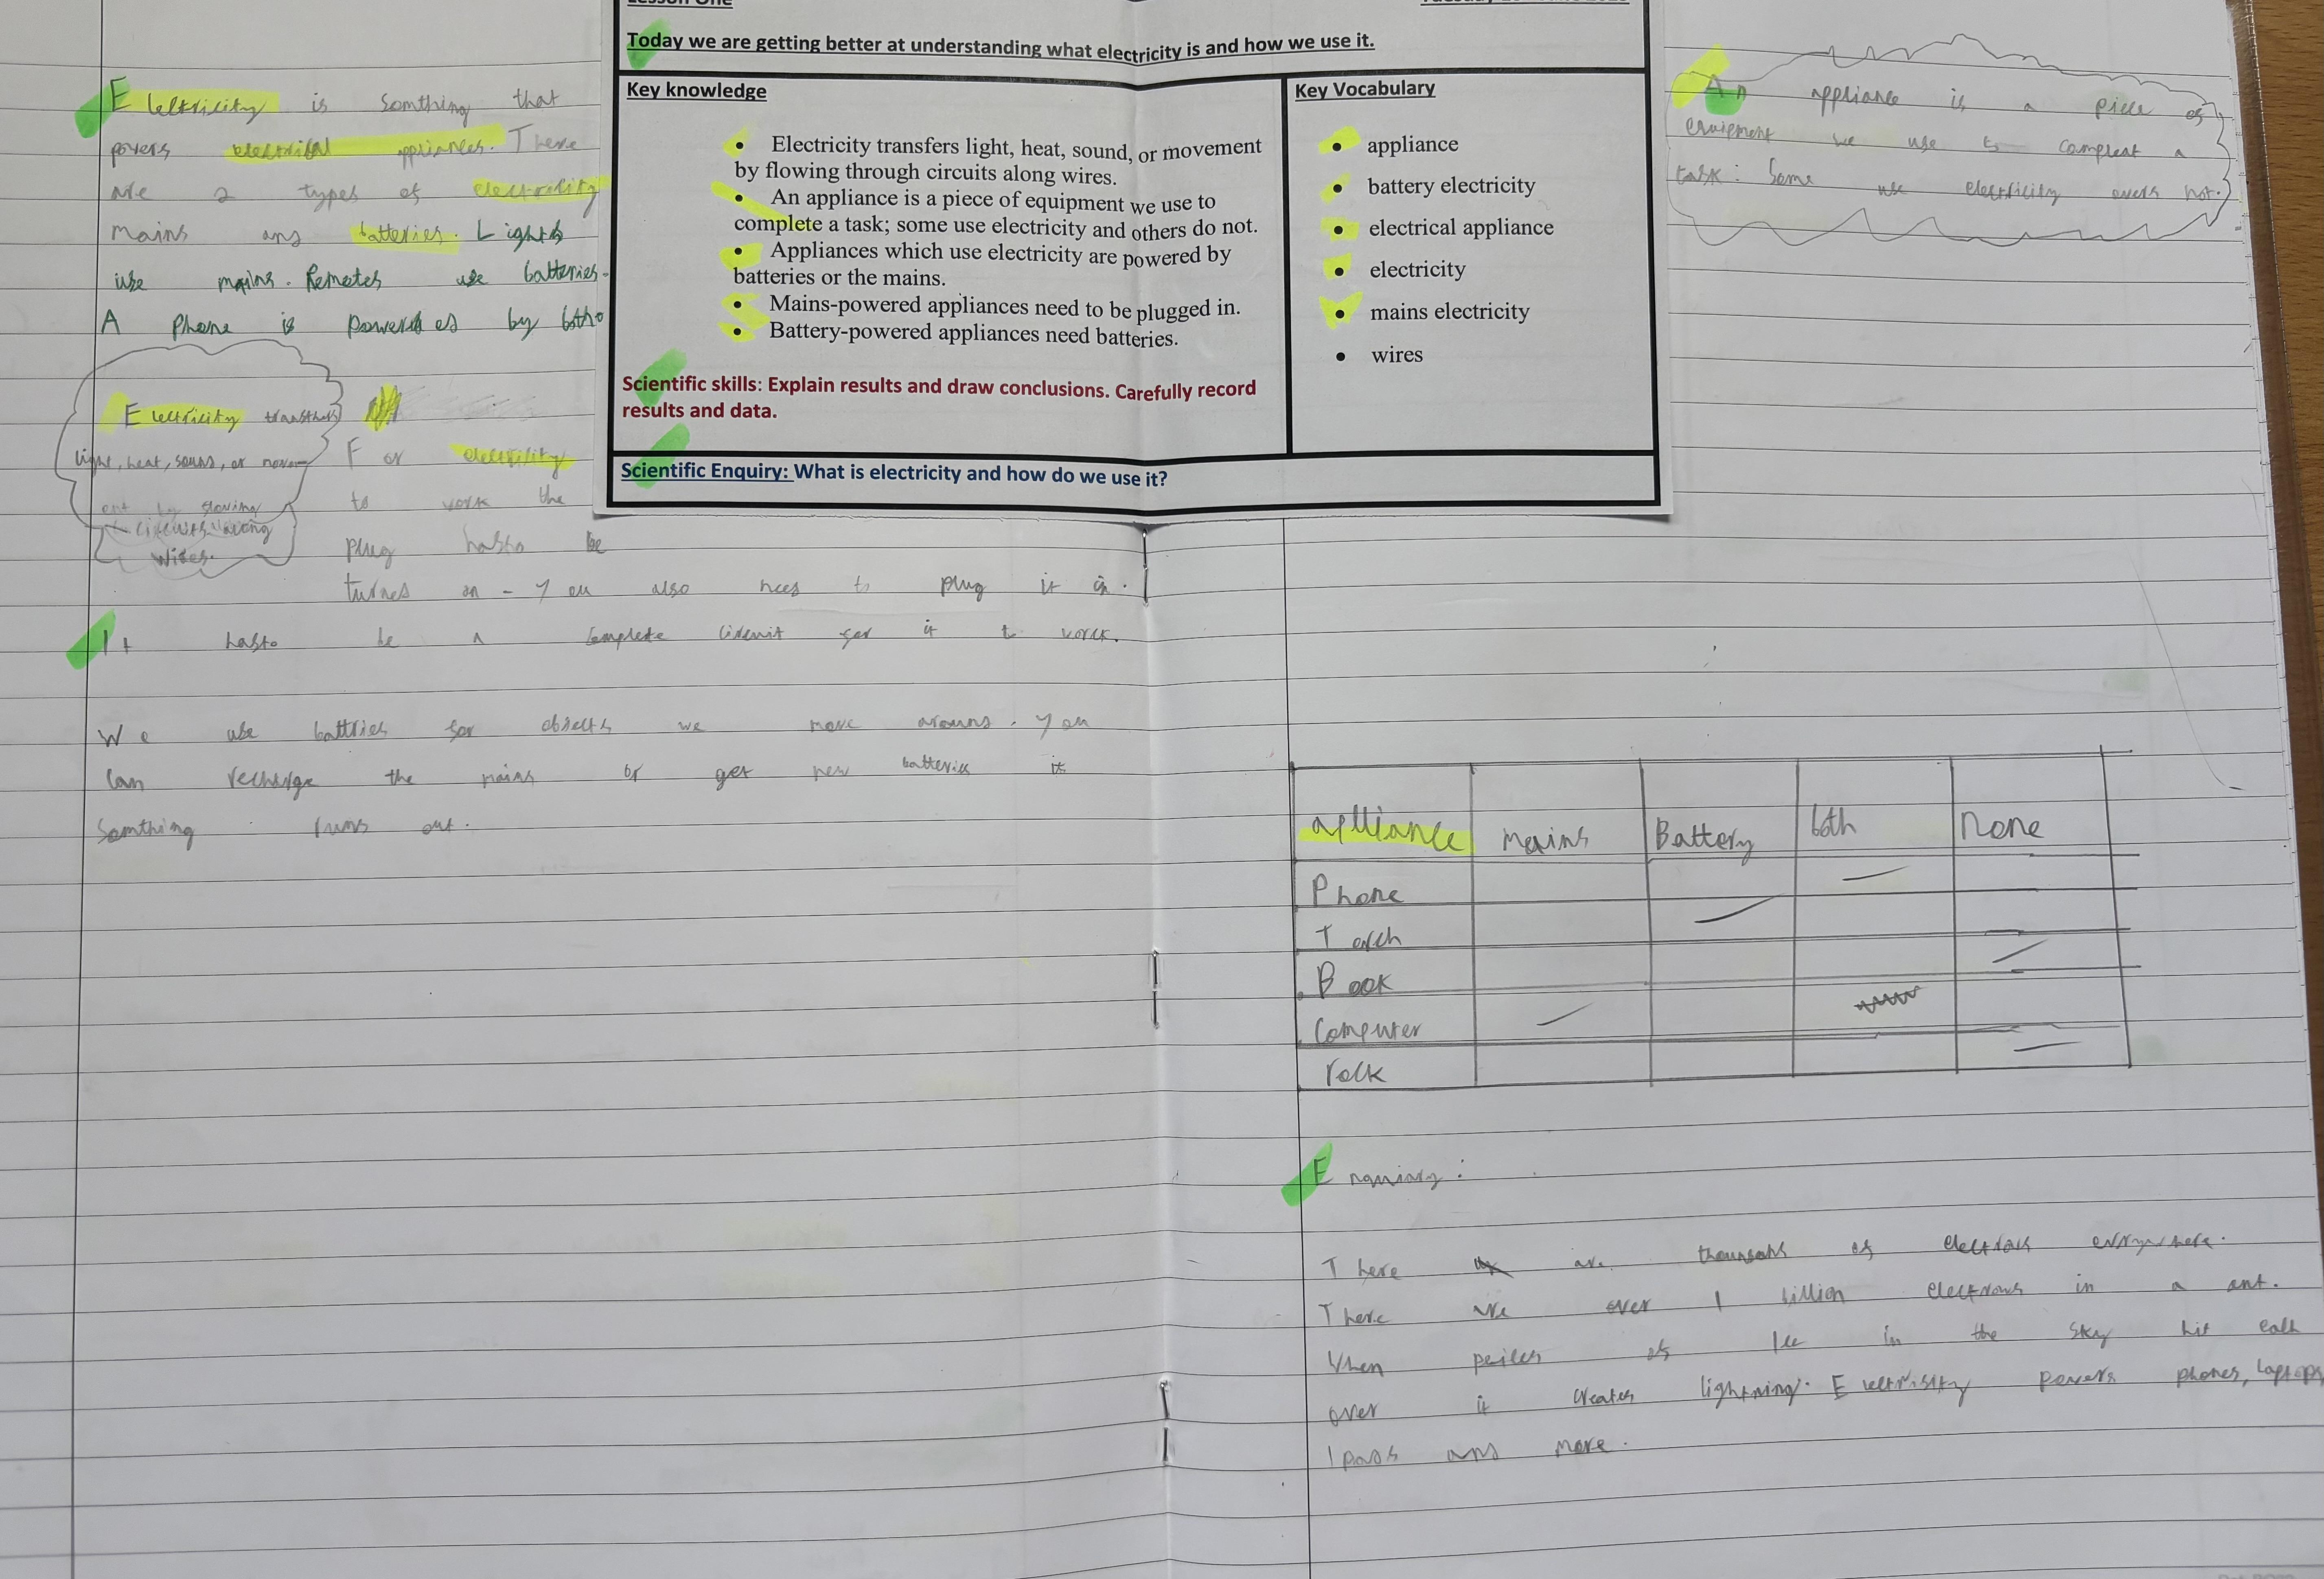 Today we are getting better at understanding what electricity is and how we use it.
Key knowledge
• Electricity transfers light, heat, sound, or movement
by flowing through circuits along wires.
• An appliance is a piece of equipment we use to
complete a task; some use electricity and others do not.
• Appliances which use electricity are powered by
batteries or the mains.
• Mains-powered appliances need to be plugged in.
• Battery-powered appliances need batteries.
Scientific skills: Explain results and draw conclusions. Carefully record
results and data.
Key Vocabulary
• appliance
• battery electricity
• electrical appliance
• electricity
• mains electricity
• wires
Scientific Enquiry: What is electricity and how do we use it?
Electricity is somthing that
powers electrical appliances. There
are 2 types of electricity
mains and batteries. Lights
use mains. Remotes use batteries.
A Phone is powered by both.
Electricity
light, heat, sound, or movem
ent by flowing
circuits along
wires.
For electricity
to work the
plug hasto be
turned on - You also need to plug it in.
It hasto be a complete circuit for it to work.
We use battries for objects we move around. You
can recharge the mains or get new batteries if
Somthing runs out.
An appliance is a piece of
equipment we use to compleat a
task: Some use electricity overs not.
aplliance Mains Battery both none
Phone
Torch
Book
Computer
rock
Enquiry:
There are thousands of electrons everywhere.
There are over 1 billion electrons in a ant.
When peices of Ice in the sky hit each
over it creates lightning. Electrisity powers phones, laptops,
Ipads and more.